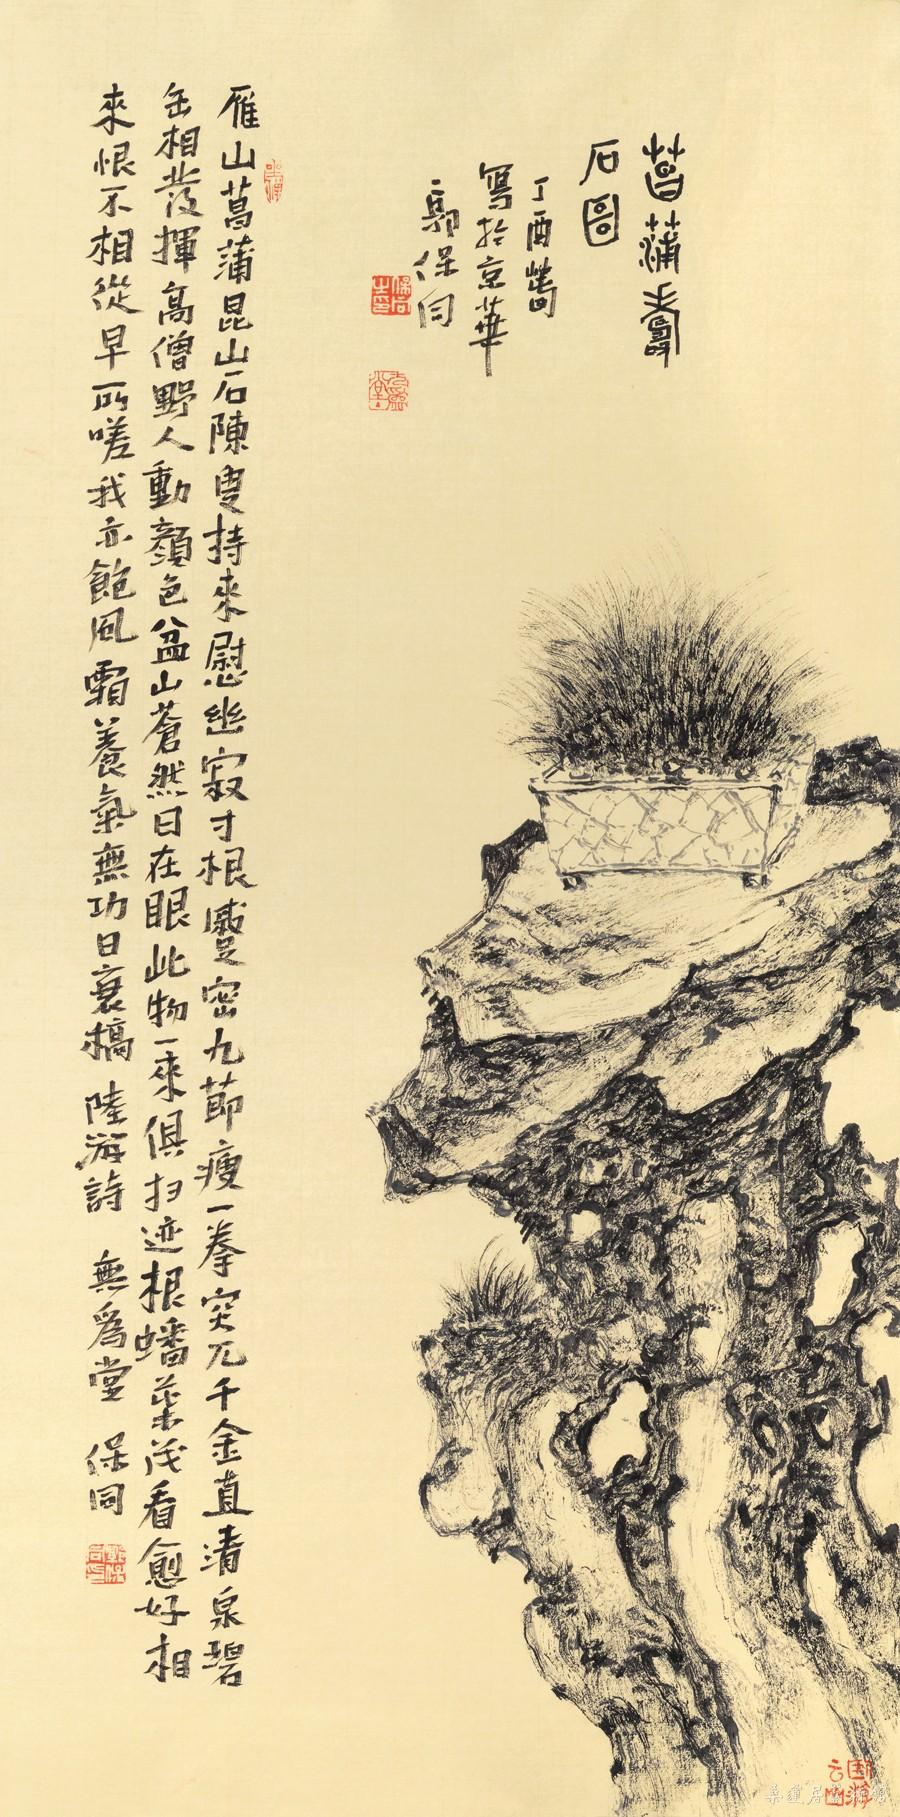 菖蒲壽
石圖
丁酉舊
寫於京華
郭保同
雁山菖蒲昆山石陳叟持來慰幽寂寸根蹙密九節瘦一拳突兀千金直清泉碧
缶相發揮高僧野人動顏色盆山蒼然日在眼此物一來俱掃迹根蟠葉茂看愈好相
來恨不相從早所嗟我亦飽風霜養氣無功日衰槁 陸游詩 無爲堂 保同